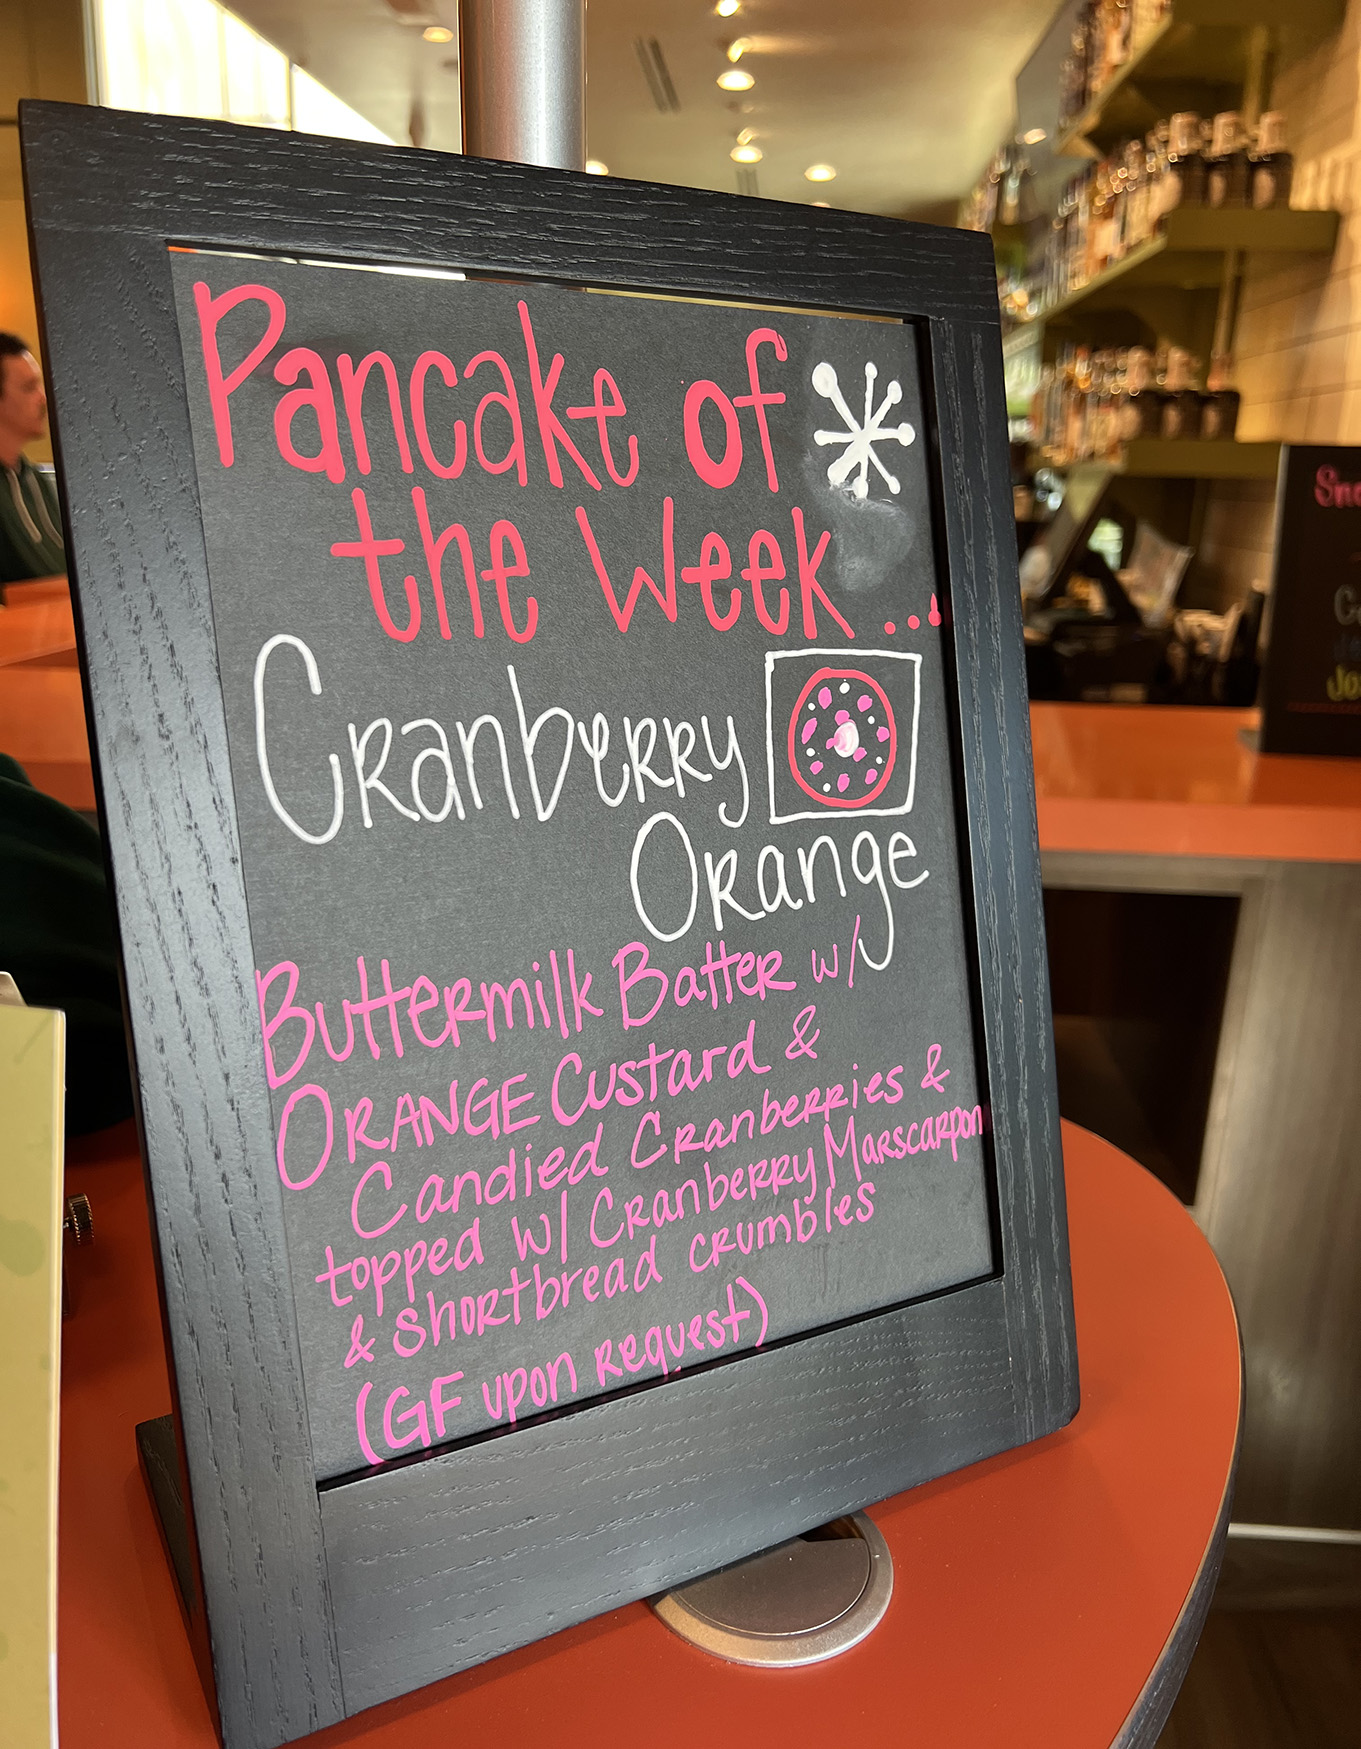 Pancake of
the Week...
Cranberry
Orange
Buttermilk Batter w/
ORANGE Custard &
Candied Cranberries &
topped w/ Cranberry Marscarpon
& Shortbread crumbles
(GF upon request)